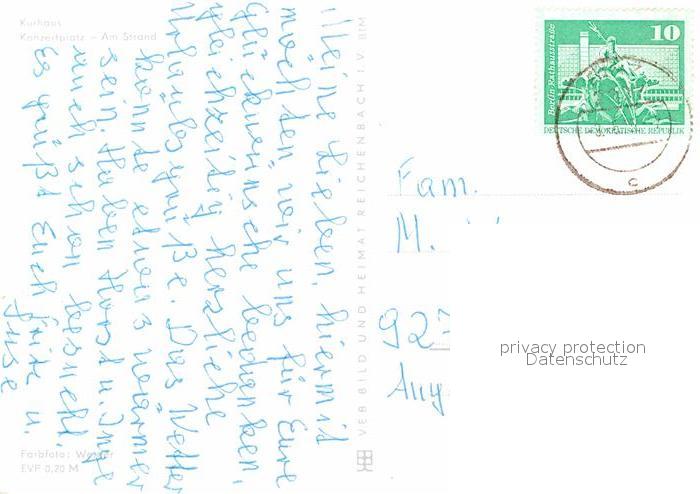 Kurhaus
Konzertplatz - Am Strand
Meine Lieben, hiermit
möchten wir uns für Eure
Glückwünsche bedanken,
gleichzeitig herzliche
Urlaubsgrüße. Das Wetter
könnte etwas wärmer
sein. Haben Horst u. Inge
auch schon besucht.
Es grüßt Euch Fritz u.
Farbfoto:
EVP 0,20 M
VEB BILD UND HEIMAT REICHENBACH I. V. BIM
10
Berlin, Rathausstraße
DEUTSCHE DEMOKRATISCHE REPUBLIK
c
Fam.
M.
927
Aug
privacy protection
Datenschutz